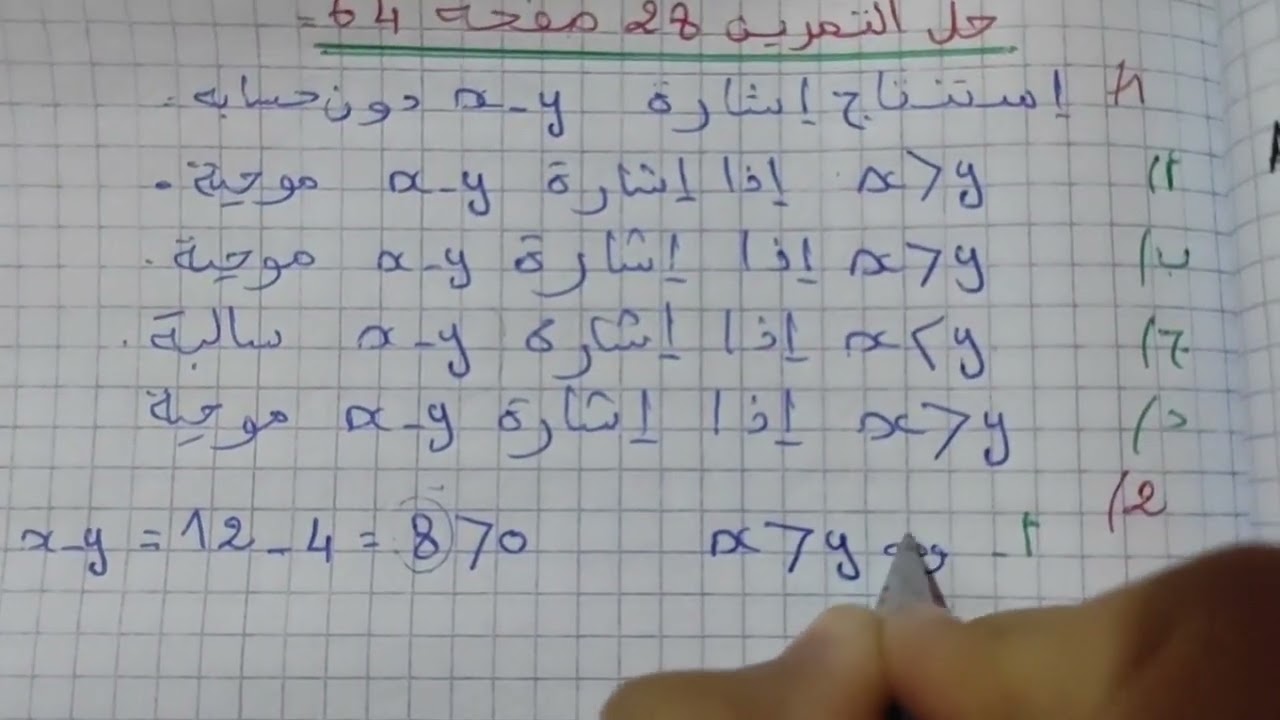 حل التمرين 28 صفحة 64 =
1/ إستنتاج إشارة x-y دون حسابه.
أ/ x>y إذا إشارة x-y موجبة.
ب/ x>y إذا إشارة x-y موجبة.
ج/ x<y إذا إشارة x-y سالبة.
د/ x>y إذا إشارة x-y موجبة
2/
أ- x>y x-y = 12-4 = 8>0